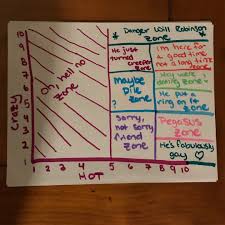 * Danger Will Robinson *
zone
He just
turned
creeper
zone
I'm here for
a good time
not a long time
zone
Oh, hell no
zone
Maybe
pile
zone
?
Hey were
dating zone
He put a
ring on it
zone
Sorry,
not sorry
friend
zone
Pegasus
zone
He's fabulously
gay ♡
CRAZY
10
9
8
7
6
5
4
3
2
1
1 2 3 4 5 6 7 8 9 10
HOT